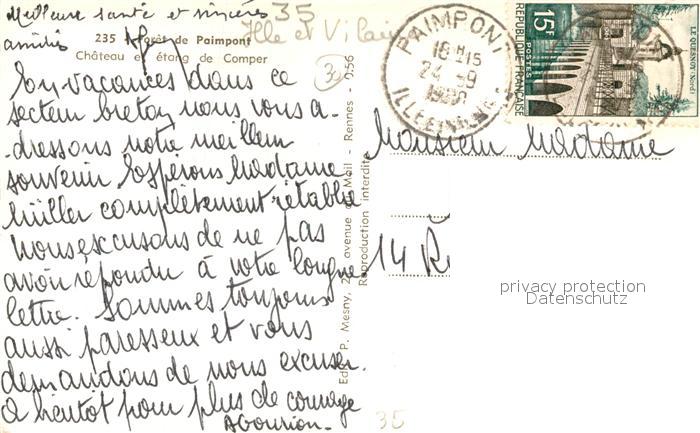 Meilleure santé et sincères
amitiés
35
Ille et Vilaine
235 Forêt de Paimpont
Château et étang de Comper
30
En vacances dans ce
secteur breton nous vous a-
dressons notre meilleur
souvenir. Espérons Madame
Müller complètement rétablie
Nous excusons de ne pas
avoir répondu à votre longue
lettre. Sommes toujours
aussi paresseux et vous
demandons de nous excuser.
A bientôt pour plus de courage
Edit. P. Mesny, avenue du Mail - Rennes - 9.56
Reproduction interdite
35
PAIMPONT
18H15
24 -9
ILLE ET VILAINE
15F
POSTES
RÉPUBLIQUE FRANÇAISE
LE QUESNOY (Nord)
Monsieur Madame
14 R
privacy protection
Datenschutz